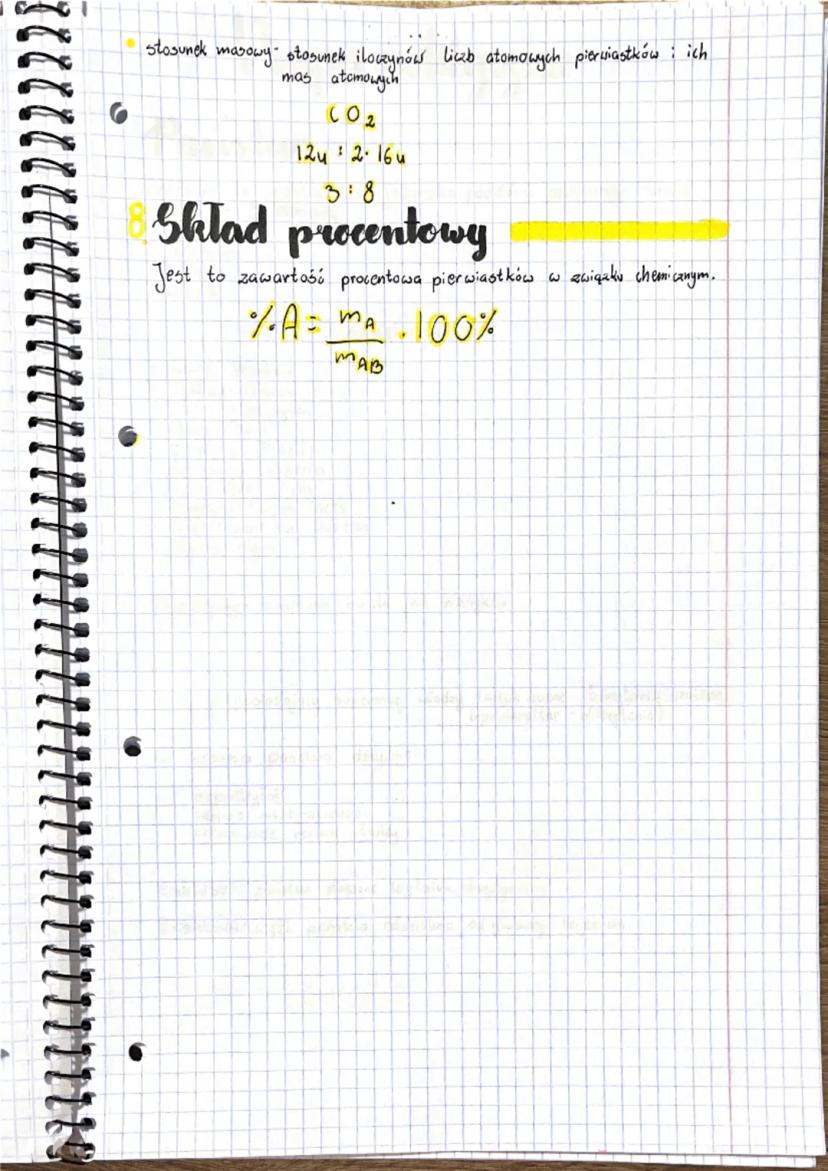 • stosunek masowy - stosunek iloczynów liczb atomowych pierwiastków i ich
mas atomowych
CO₂
12u : 2 · 16u
3 : 8
8. Skład procentowy
Jest to zawartość procentowa pierwiastków w związku chemicznym.
%A = m_A / m_AB · 100%